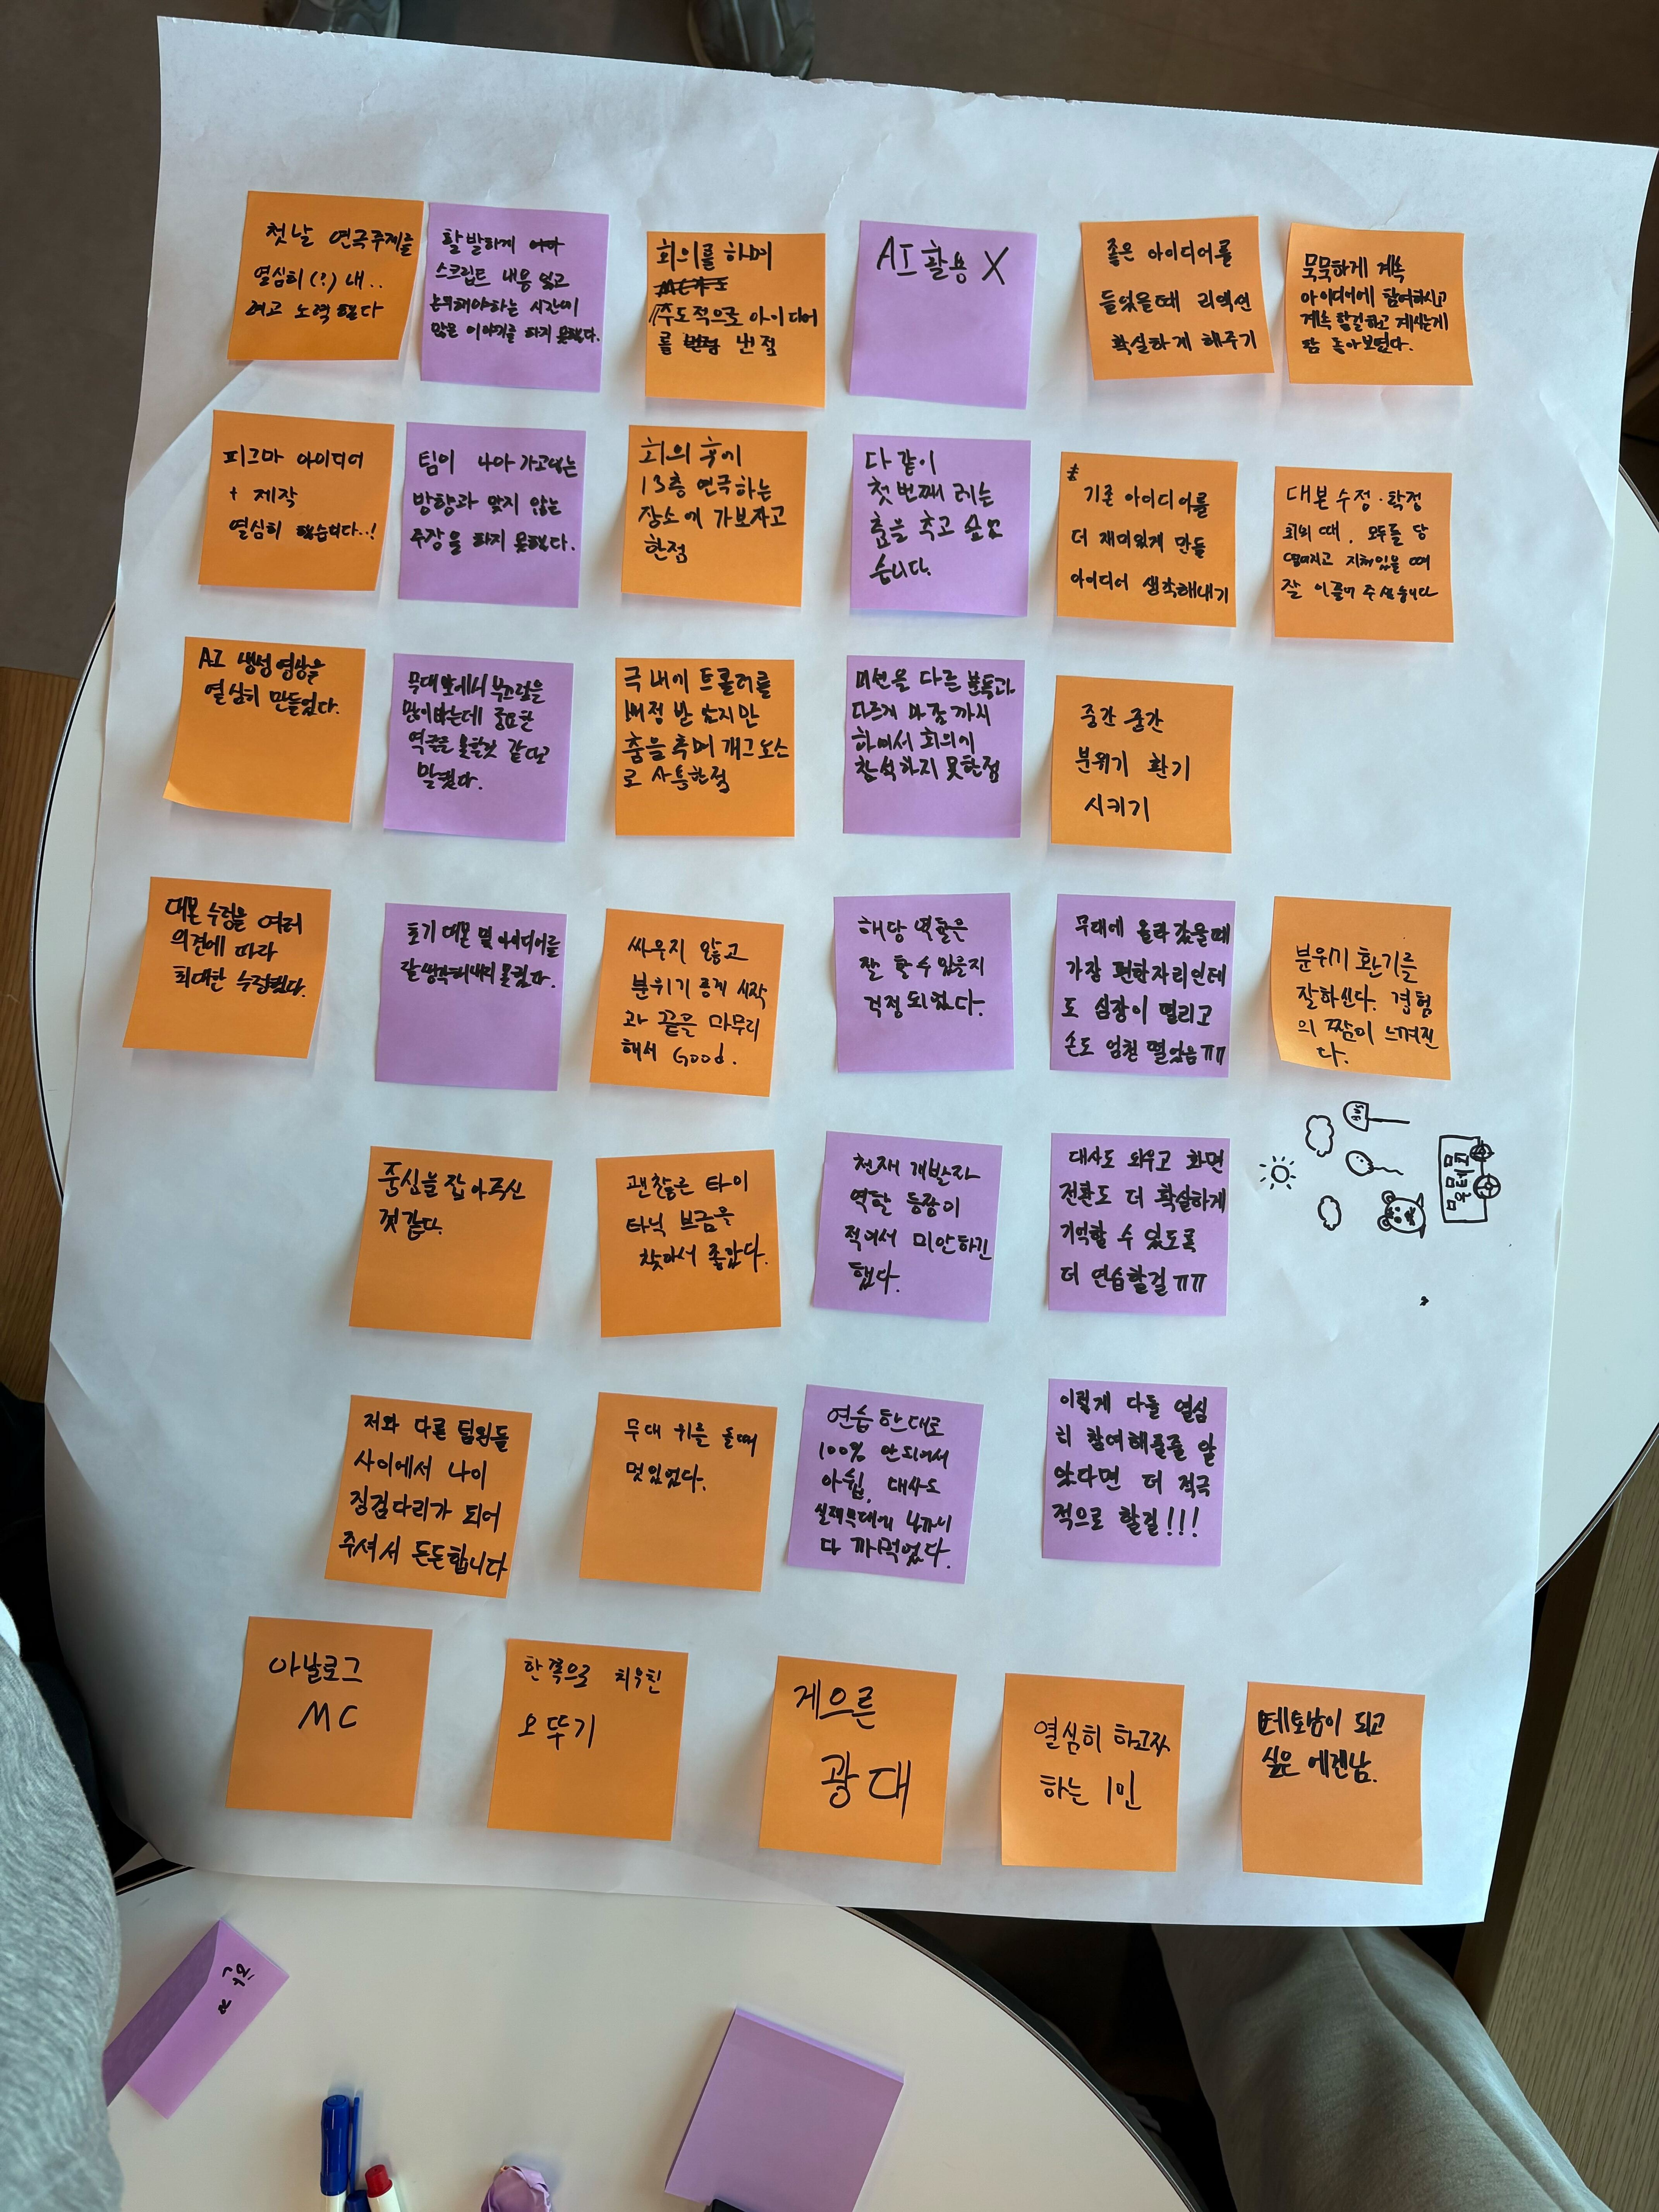 첫날 연극주제를
열심히(?) 내..
려고 노력했다
활발하게
스크립트 내용 잊고
논의해야하는 시간에
많은 이야기를 하지 못했다.
회의를 하며
주도적으로 아이디어
를 낸 점
AI 활용 X
좋은 아이디어를
들었을때 리액션
확실하게 해주기
묵묵하게 계속
아이디어에 참여하시고
계속 할걸하고 계시는게
참 좋아보였다.
피그마 아이디어
+ 제작
열심히 했습니다..!
팀이 나아가고자하는
방향과 맞지 않는
주장을 하지 못했다.
회의 후에
13층 연극하는
장소에 가보자고
한점
다 같이
첫 번째 러는
춤을 추고 싶었
습니다.
기존 아이디어를
더 재미있게 만들
아이디어 생각해내기
대본 수정·확정
회의 때, 모두들 당
떨어지고 지쳐있을 때
잘 이끌어 주셨습니다
AI 생성 영상을
열심히 만들었다.
무대 앞에서 부끄럼을
많이타는데 중요한
역할을 못할것 같다고
말했다.
극 내에 트롤러를
배정 받았지만
춤을 추며 개그요소
로 사용한점
미션을 다른 분들과
다르게 마감까지
하여서 회의에
참석하지 못한점
중간 중간
분위기 환기
시키기
대본 수정을 여러
의견에 따라
최대한 수정했다.
초기 대본 및 아이디어를
잘 생각해내지 못했다.
싸우지 않고
분위기 좋게 시작
과 끝을 마무리
해서 Good.
해당 역할은
잘 할 수 있을지
걱정 되었다.
무대에 올라 갔을때
가장 편한자리인데
도 심장이 떨리고
손도 엄청 떨었음ㅠㅠ
분위기 환기를
잘하신다. 경험
의 짬이 느껴진
다.
중심을 잡아주신
것 같다.
괜찮은 타이
타닉 브금을
찾아서 좋았다.
천재 개발자
역할 등장이
적어서 미안하긴
했다.
대사도 외우고 화면
전환도 더 확실하게
기억할 수 있도록
더 연습할걸 ㅠㅠ
저와 다른 팀원들
사이에서 나이
징검다리가 되어
주셔서 든든합니다
무대 위를 올때
멋있었다.
연습 한대로
100% 안되어서
아쉽. 대사도
실제무대에 나가니
다 까먹었다.
이렇게 다들 열심
히 참여해줄줄 알
았다면 더 적극
적으로 할걸!!!
아날로그
MC
한쪽으로 치우친
오뚜기
게으른
광대
열심히 하고자
하는 1인
테토남이 되고
싶은 에겐남.